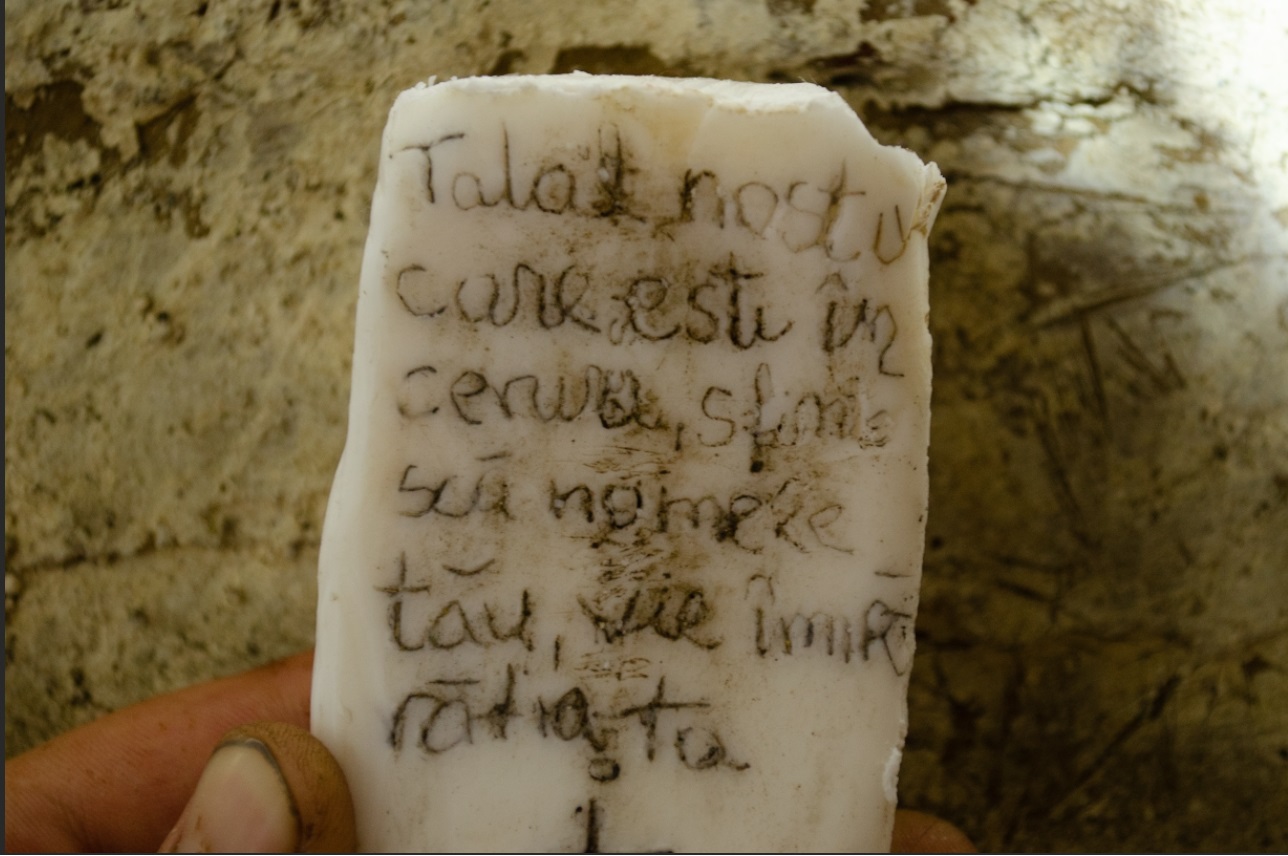 Talat nostu
care esti în
cerure, sfin
să nomele
tău, vie împă
rătia ta